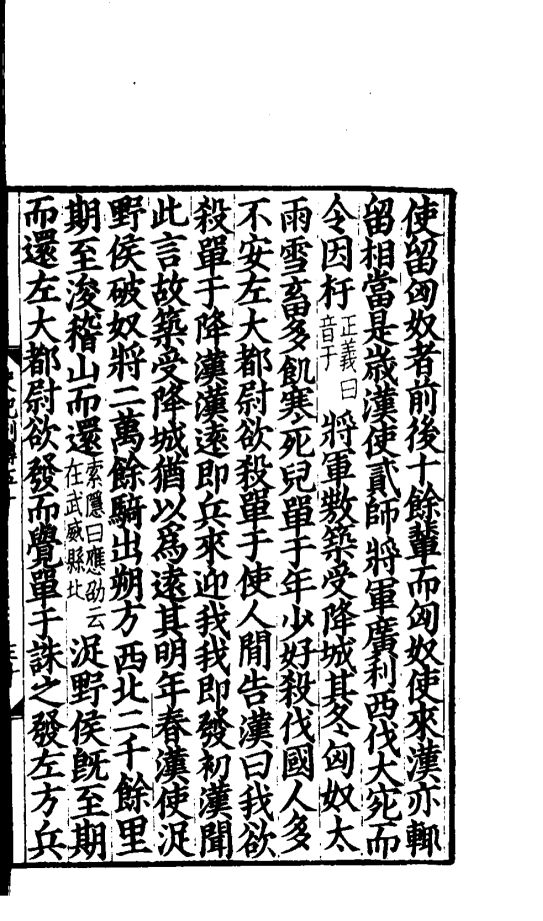 使留匈奴者前後十餘輩而匈奴使來漢亦輙
留相當是歳漢使貳師將軍廣利西伐大宛而
令因杅正義曰音于將軍敖築受降城其冬匈奴大
雨雪畜多飢寒死兒單于年少好殺伐國人多
不安左大都尉欲殺單于使人閒告漢曰我欲
殺單于降漢漢遠即兵來迎我我即發初漢聞
此言故築受降城猶以爲遠其明年春漢使浞
野侯破奴將二萬餘騎出朔方西北二千餘里
期至浚稽山而還索隱曰應劭云在武威縣北浞野侯旣至期
而還左大都尉欲發而覺單于誅之發左方兵